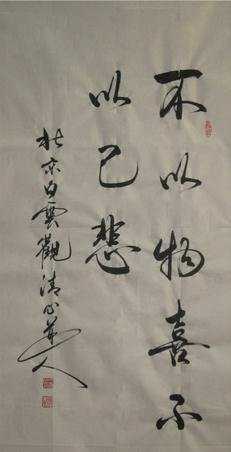 不以物喜不
以己悲
北京白雲觀清心善人